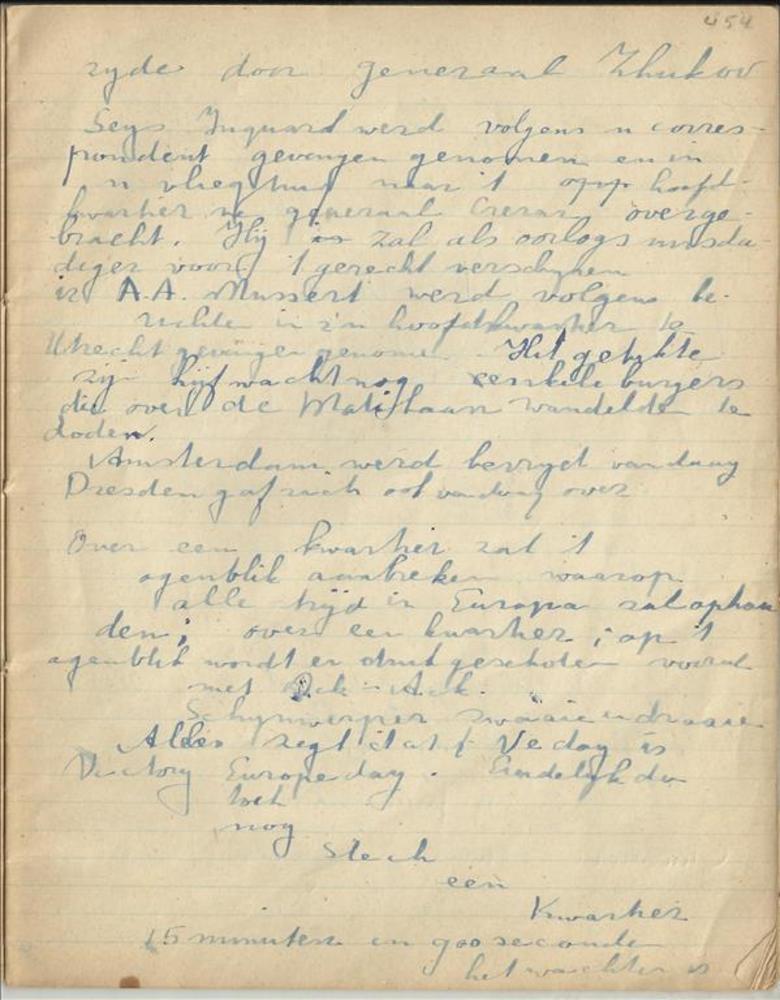 454
zyde door generaal Zhukov
Seys Inquard werd volgens n corres-
pondent gevangen genomen en in
n vliegtuig naar 't opp hoofd-
kwartier generaal Crerar overge-
bracht. Hij zal als oorlogs misda-
diger voor 't gerecht verschynen
ir A.A. Mussert werd volgens be-
richten in z'n hoofdkwartier te
Utrecht gevangen genomen. Het gelukte
zijn lijfwacht nog eenkele burgers
die over de Maliebaan wandelden te
doden.
Amsterdam werd bevryd vandaag
Dresden gaf zich ook vandaag over
Over een kwartier zal 't
ogenblik aanbreken waarop
alle strijd in Europa zal ophou
den; over een kwartier; op 't
ogenblik wordt er druk geschoten vooral
met Ack-Ack.
Schynwerper zwaaien draaie
Alles zegt dat Ve day is
Victory Europe day. Eindelyk dan
toch
nog
Slech
een
Kwartier
15 minuten en 900 seconde
het wachten is